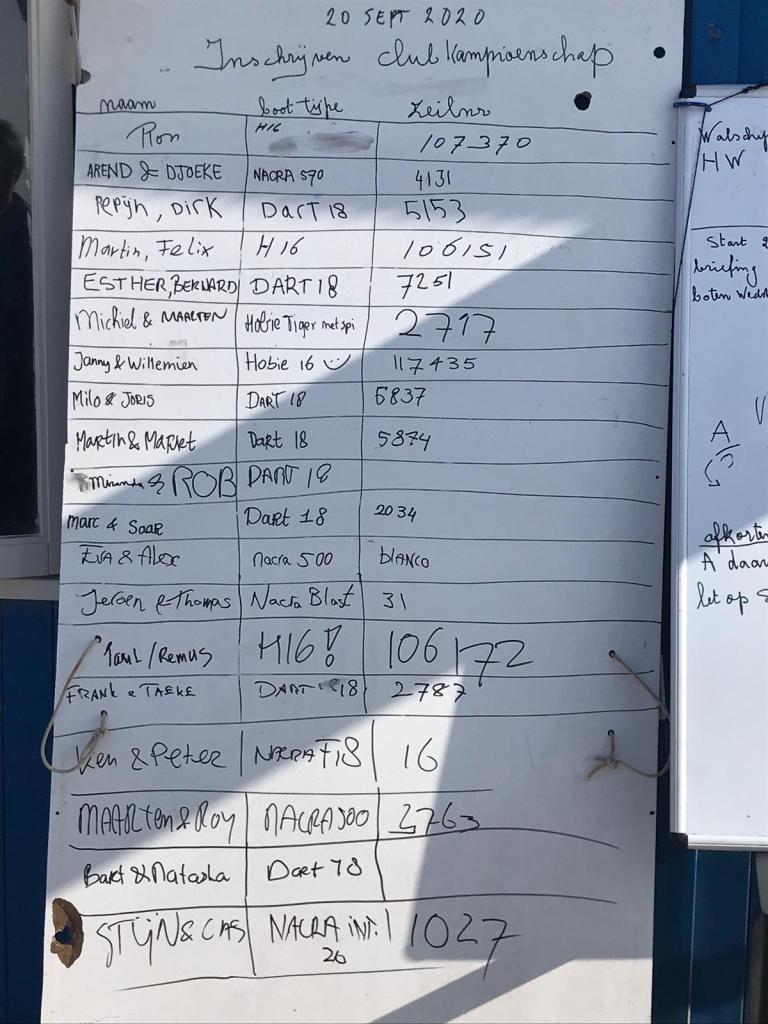 20 SEPT 2020
Inschrijven clubkampioenschap
naam boot type zeilnr
Ron H16 107370
AREND & DJOEKE NACRA 570 4131
Pepijn, DIRK DART 18 5153
Martin, Felix H16 106151
ESTHER, BERNARD DART 18 7251
Michiel & MAARTEN Hobie Tiger met spi 2717
Janny & Willemien Hobie 16 117435
Milo & JORIS DART 18 6837
Martin & Market Dart 18 5874
Miranda & ROB DART 18
Marc & Saar Dart 18 2034
EVA & Alex nacra 500 blANCO
Jeroen & Thomas Nacra Blast 31
/Remus H16! 106172
FRANK & TAEKE DART 18 2787
Ken & Peter NACRA F18 16
MAARTEN & Roy NACRA 500 2763
Bart & Natasha Dart 18
STIJN & CAS NACRA INT. 1027
20
HW
Start
briefing
boten
A
A daar
let op